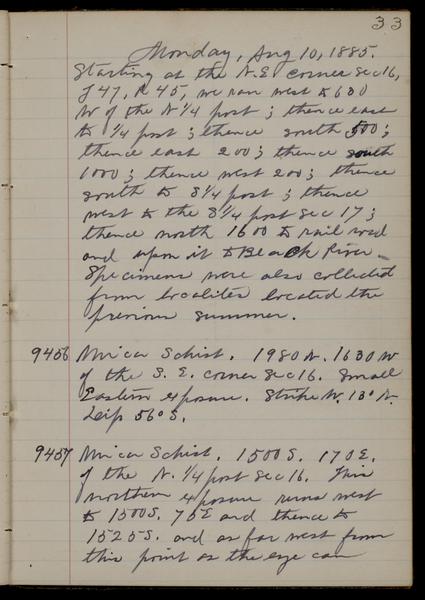 33
Monday, Aug 10, 1885.
Starting at the N.E corner Sec 16,
T 47, R 45, we ran west to 600
W of the N 1/4 post ; thence east
to 1/4 post ; thence south 500 ;
thence east 200 ; thence south
1000 ; thence west 200 ; thence
south to S 1/4 post ; thence
west to the S 1/4 post Sec 17 ;
thence north 1600 to rail road
and upon it to Black River.
Specimens were also collected
from localites located the
previous summer.
9456 Micar Schist. 1980 N. 1630 W
of the S. E. corner Sec 16. Small
Eastern exposure. Strike W. 13° N.
Dip 56° S.
9457 Micar Schist. 1500 S. 170 E.
of the N. 1/4 post Sec 16. This
northern exposure runs west
to 1500 S. 75 E and thence to
1525 S. and as far west from
this point as the eye can